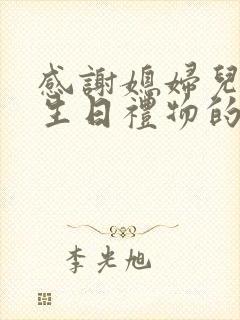 感謝媳婦兒
生日禮物的
李光旭